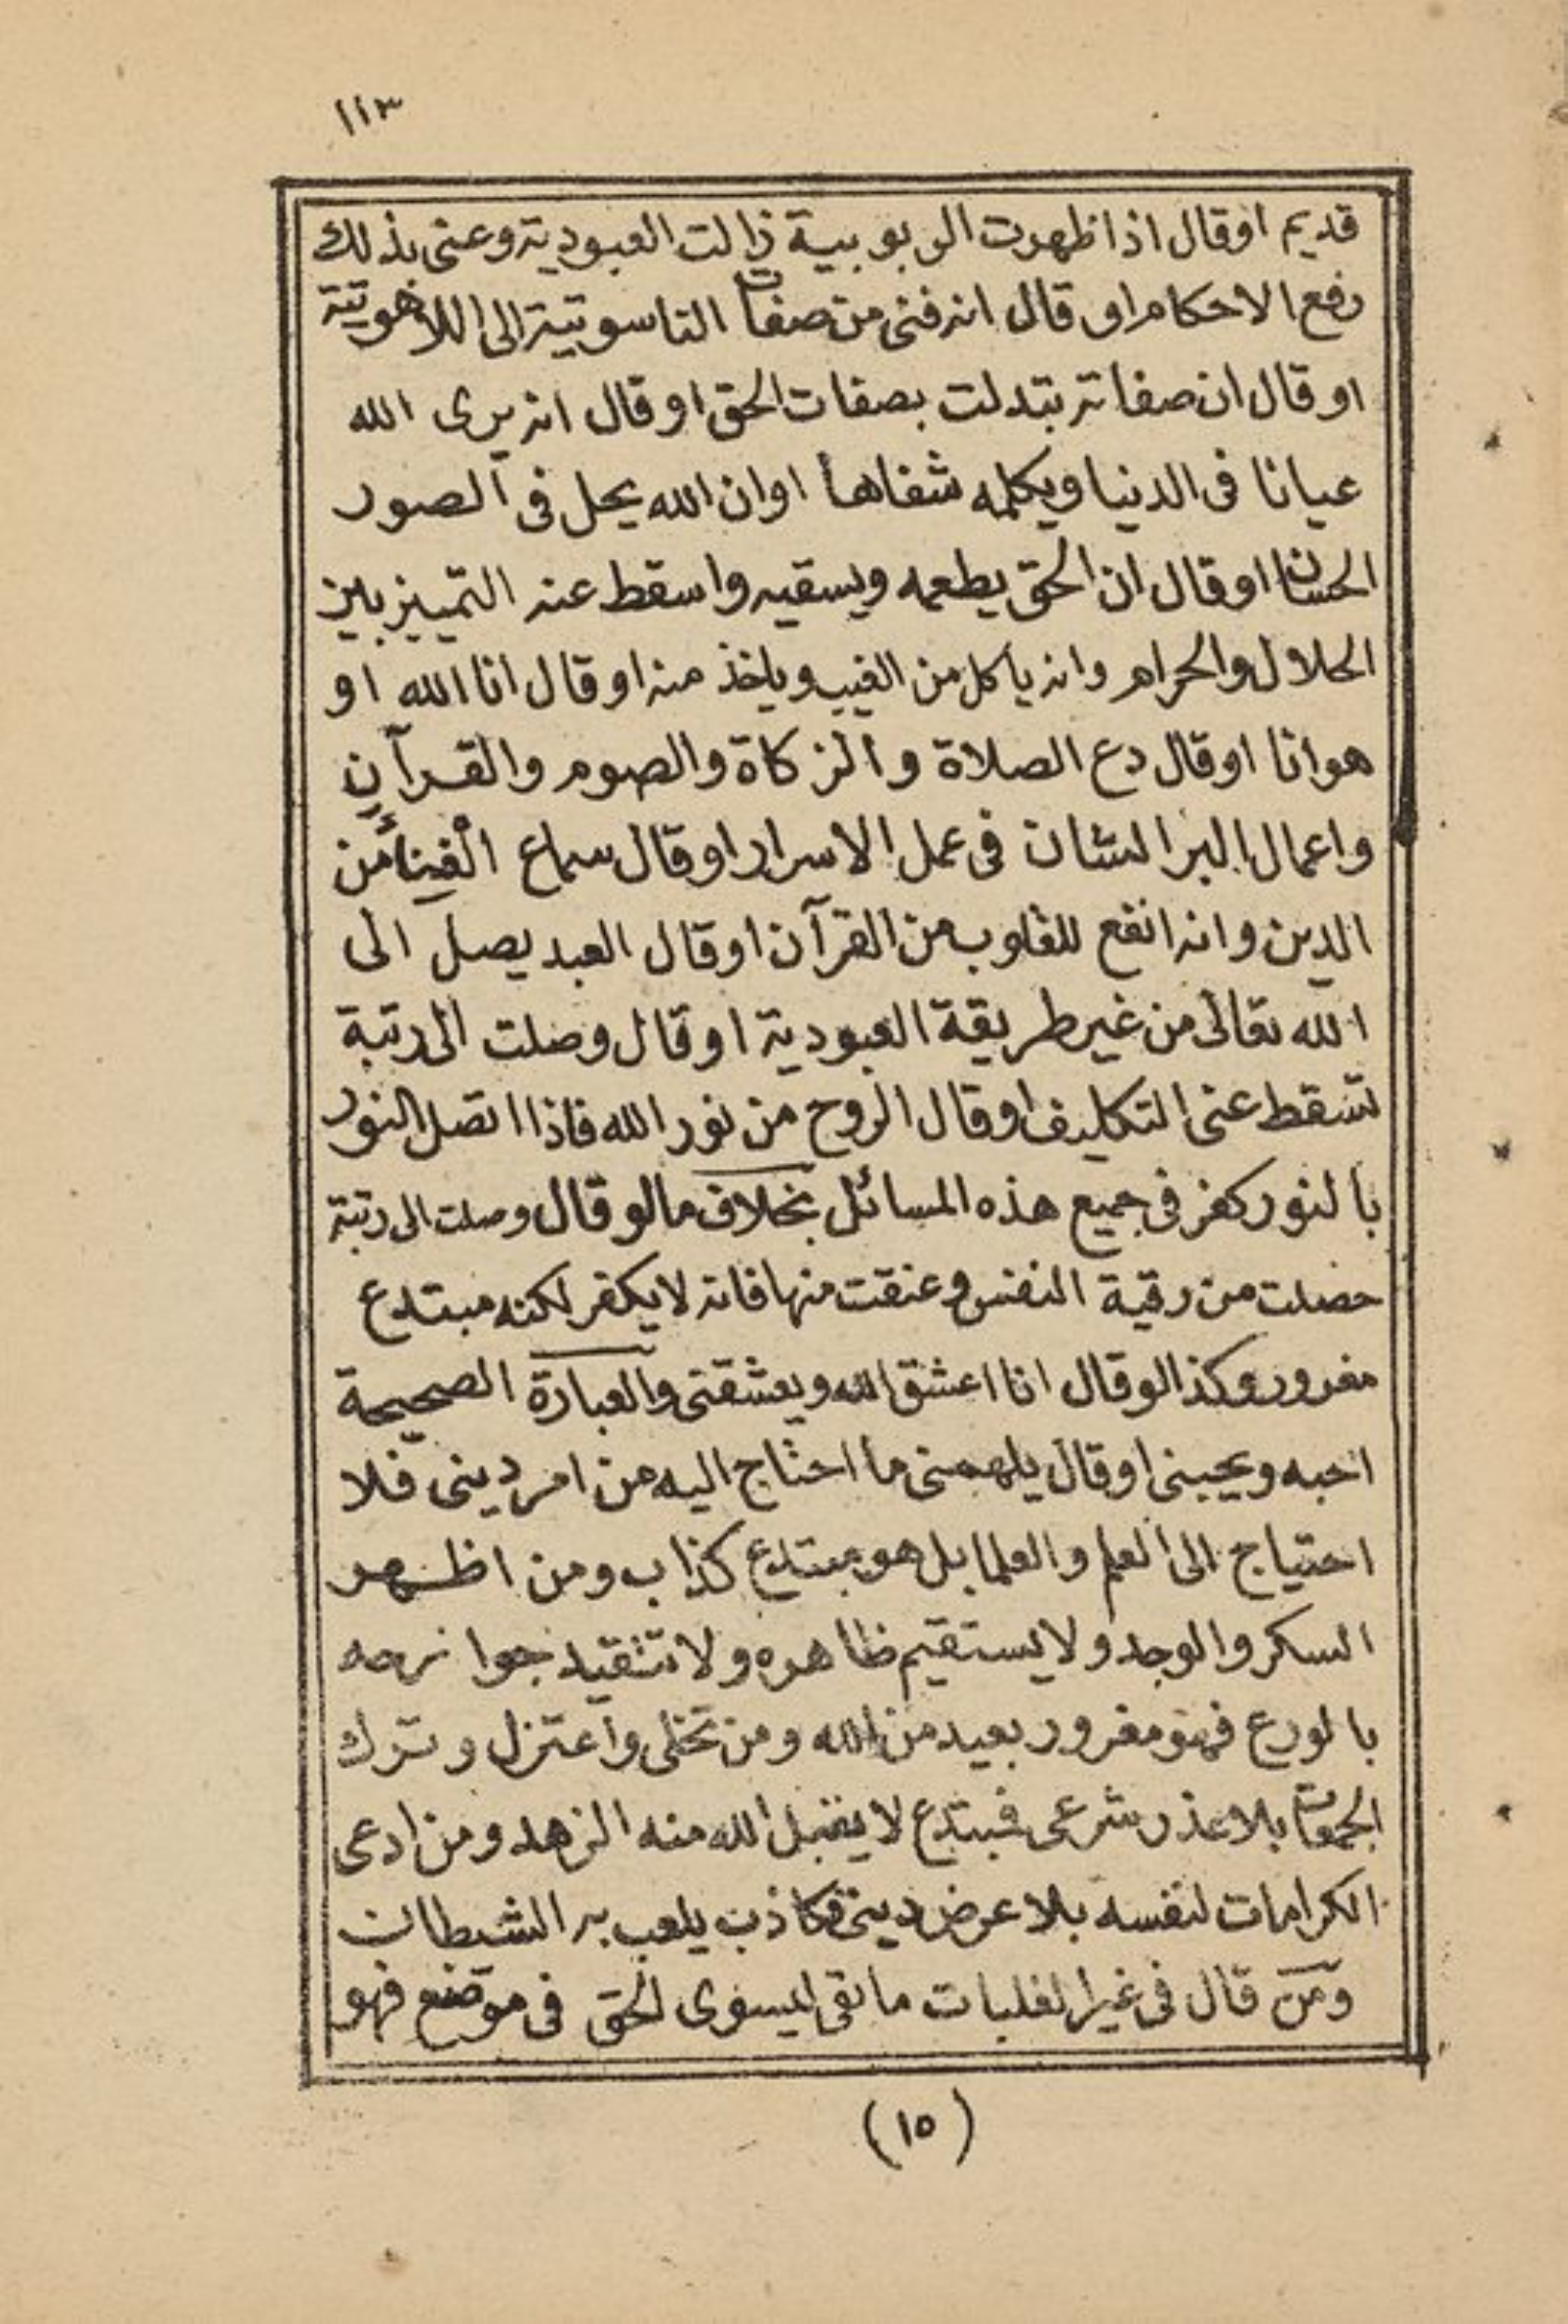 ١١٣
قديم اوقال اذا ظهرت الربوبية زالت العبودية وعنى بذلك
رفع الاحكام او قال انه فنى من صفات الناسوتية الى اللاهوتية
او قال ان صفاته تبدلت بصفات الحق او قال انه يرى الله
عيانا فى الدنيا ويكلمه شفاها اوان الله يحل فى الصور
الحسان اوقال ان الحق يطعمه ويسقيه واسقط عنه التمييز بين
الحلال والحرام وانه ياكل من الغيب وياخذ منه اوقال انا الله او
هوانا اوقال دع الصلاة والزكاة والصوم والقرآن
واعمال البر الشان فى عمل الاسرار اوقال سماع الغناء من
الدين وانه انفع للقلوب من القرآن اوقال العبد يصل الى
الله تعالى من غير طريقة العبودية اوقال وصلت الى رتبة
تسقط عنى التكليف اوقال الروح من نور الله فاذا اتصل النور
بالنور كفر فى جميع هذه المسائل بخلاف مالو قال وصلت الى رتبة
حصلت من رقية النفس وعتقت منها فانه لايكفر لكنه مبتدع
مغرور وكذا لوقال انا اعشق الله ويعشقنى والعبارة الصحيحة
احبه ويحبنى اوقال يلهمنى ما احتاج اليه من امر دينى فلا
احتياج الى العلم والعلما بل هو مبتدع كذاب ومن اظهر
السكر والوجد ولايستقيم ظاهره ولا تتقيد جوارحه
بالورع فهو مغرور بعيد من الله ومن تخلى واعتزل وترك
الجمعات بلاعذر شرعى فمبتدع لايقبل الله منه الزهد ومن ادعى
الكرامات لنفسه بلا عرض دينى فكاذب يلعب به الشيطان
ومن قال فى غير الغلبات ما بقى لى سوى الحق فى موضع فهو
(١٥)